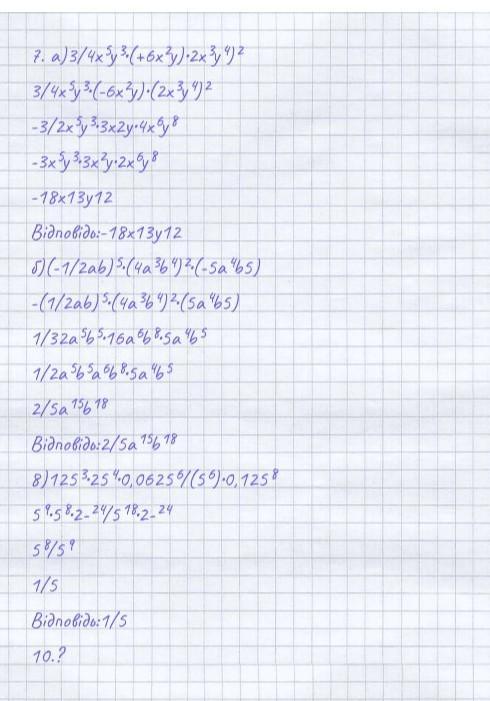 7. а)3/4x⁵y³·(+6x²y)·2x³y⁴)²
3/4x⁵y³·(-6x²y)·(2x³y⁴)²
-3/2x⁵y³·3x2y·4x⁶y⁸
-3x⁵y³·3x²y·2x⁶y⁸
-18x13y12
Відповідь:-18x13y12
б)(-1/2ab)⁵·(4a³b⁴)²·(-5a⁴b5)
-(1/2ab)⁵·(4a³b⁴)²·(5a⁴b5)
1/32a⁵b⁵·16a⁶b⁸·5a⁴b⁵
1/2a⁵b⁵a⁶b⁸·5a⁴b⁵
2/5a¹⁵b¹⁸
Відповідь:2/5a¹⁵b¹⁸
8)125³·25⁴·0,0625⁶/(5⁶)·0,125⁸
5⁹·5⁸·2-²⁴/5¹⁸·2-²⁴
5⁸/5⁹
1/5
Відповідь:1/5
10.?